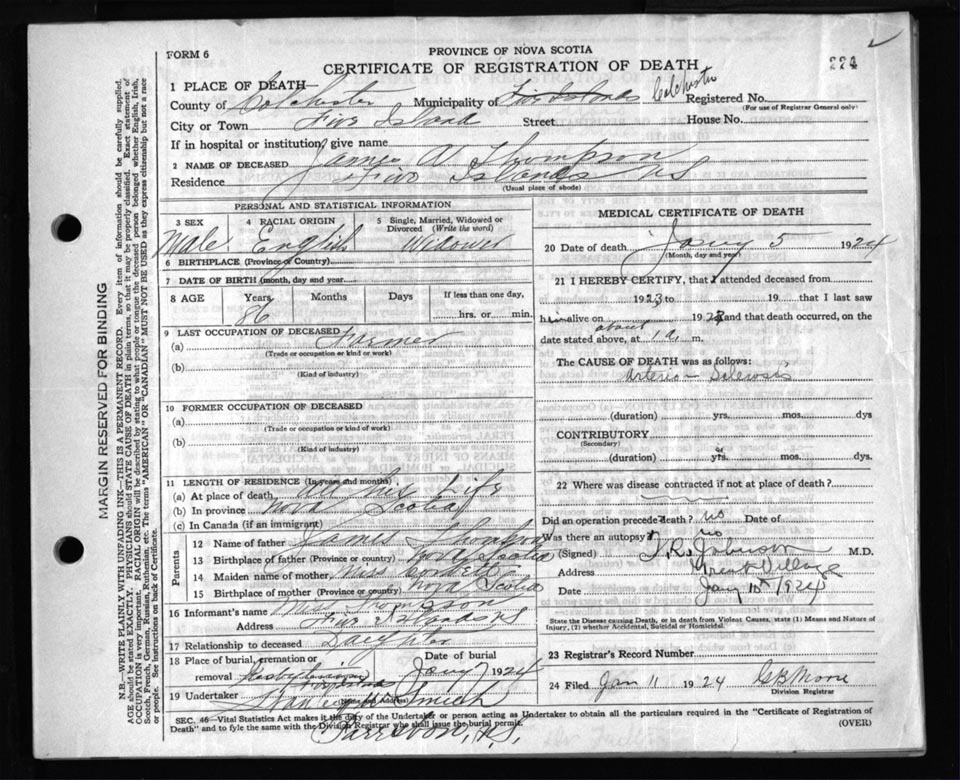 FORM 6
PROVINCE OF NOVA SCOTIA
CERTIFICATE OF REGISTRATION OF DEATH
224
1 PLACE OF DEATH—
County of Colchester Municipality of Five Islands Colchester Registered No.
(For use of Registrar General only)
City or Town Five Island Street House No.
If in hospital or institution, give name
2 NAME OF DECEASED James A Thompson
Residence Five Islands NS
(Usual place of abode)
PERSONAL AND STATISTICAL INFORMATION
3 SEX 4 RACIAL ORIGIN 5 Single, Married, Widowed or Divorced (Write the word)
Male English Widower
6 BIRTHPLACE (Province or Country)
7 DATE OF BIRTH (month, day and year)
8 AGE Years Months Days If less than one day,
86 hrs. or min.
9 LAST OCCUPATION OF DECEASED
(a) Farmer
(Trade or occupation or kind or work)
(b)
(Kind of industry)
10 FORMER OCCUPATION OF DECEASED
(a)
(Trade or occupation or kind or work)
(b)
(Kind of industry)
11 LENGTH OF RESIDENCE (In years and months)
(a) At place of death, all his life
(b) In province Nova Scotia
(c) In Canada (if an immigrant)
Parents
12 Name of father James Thompson
13 Birthplace of father (Province or country) Nova Scotia
14 Maiden name of mother Miss
15 Birthplace of mother (Province or country) Nova Scotia
16 Informant's name Thompson
Address Five Islands NS
17 Relationship to deceased Daughter
18 Place of burial, cremation or removal Date of burial
Jany 7 1924
19 Undertaker Smith
(Name and Address)
Parrsboro, N.S.
MEDICAL CERTIFICATE OF DEATH
20 Date of death Jany 5 1924
(Month, day and year)
21 I HEREBY CERTIFY, that I attended deceased from
1923 to 19 that I last saw
him alive on 1923 and that death occurred, on
date stated above, at about 1 a. m.
The CAUSE OF DEATH was as follows:
Arterio Sclerosis
(duration) yrs. mos. dys
CONTRIBUTORY
(Secondary)
(duration) yrs. mos. dys.
22 Where was disease contracted if not at place of death?
Did an operation precede death? no Date of
Was there an autopsy? no
(Signed) T.R. Johnson M.D.
Address Great Village
Date Jany 10th 1924
State the Disease causing Death, or in death from Violent Causes, state (1) Means and Nature of Injury, (2) whether Accidental, Suicidal or Homicidal.
23 Registrar's Record Number
24 Filed Jan 11 1924 G B Moore
Division Registrar
SEC. 46—Vital Statistics Act makes it the duty of the Undertaker or person acting as Undertaker to obtain all the particulars required in the "Certificate of Registration of
Death" and to fyle the same with the Division Registrar who shall issue the burial permit. (OVER)
MARGIN RESERVED FOR BINDING
N.B.—WRITE PLAINLY WITH UNFADING INK—THIS IS A PERMANENT RECORD. Every item of information should be carefully supplied.
AGE should be stated EXACTLY. PHYSICIANS should STATE CAUSE OF DEATH in plain terms, so that it may be properly classified. Exact statement of
OCCUPATION is very important. RACIAL ORIGIN will be described by stating to what people or tongue the deceased person belonged whether English, Irish,
Scotch, French, German, Russian, Ruthenian, etc. The terms "AMERICAN" or "CANADIAN" MUST NOT BE USED as they express citizenship but not a race
or people. See instructions on back of Certificate.